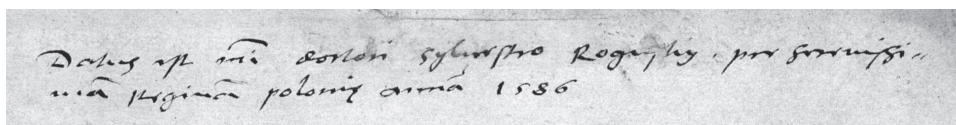 Datus est mĩ doctori Sylvestro Roguski, per serenissi=
mã Reginã polonię annã 1586